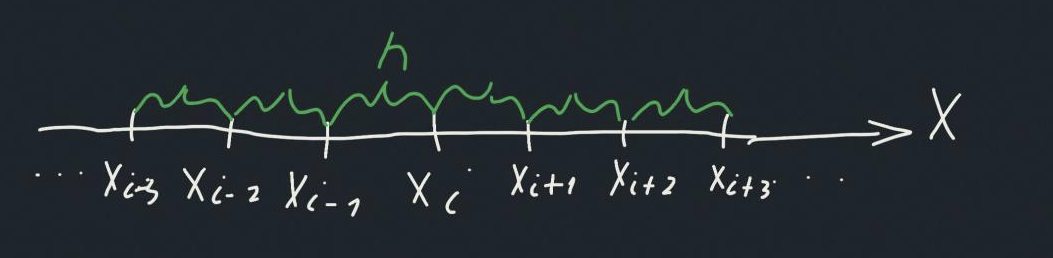 h
X
... X_{i-3} X_{i-2} X_{i-1} X_i X_{i+1} X_{i+2} X_{i+3} ...